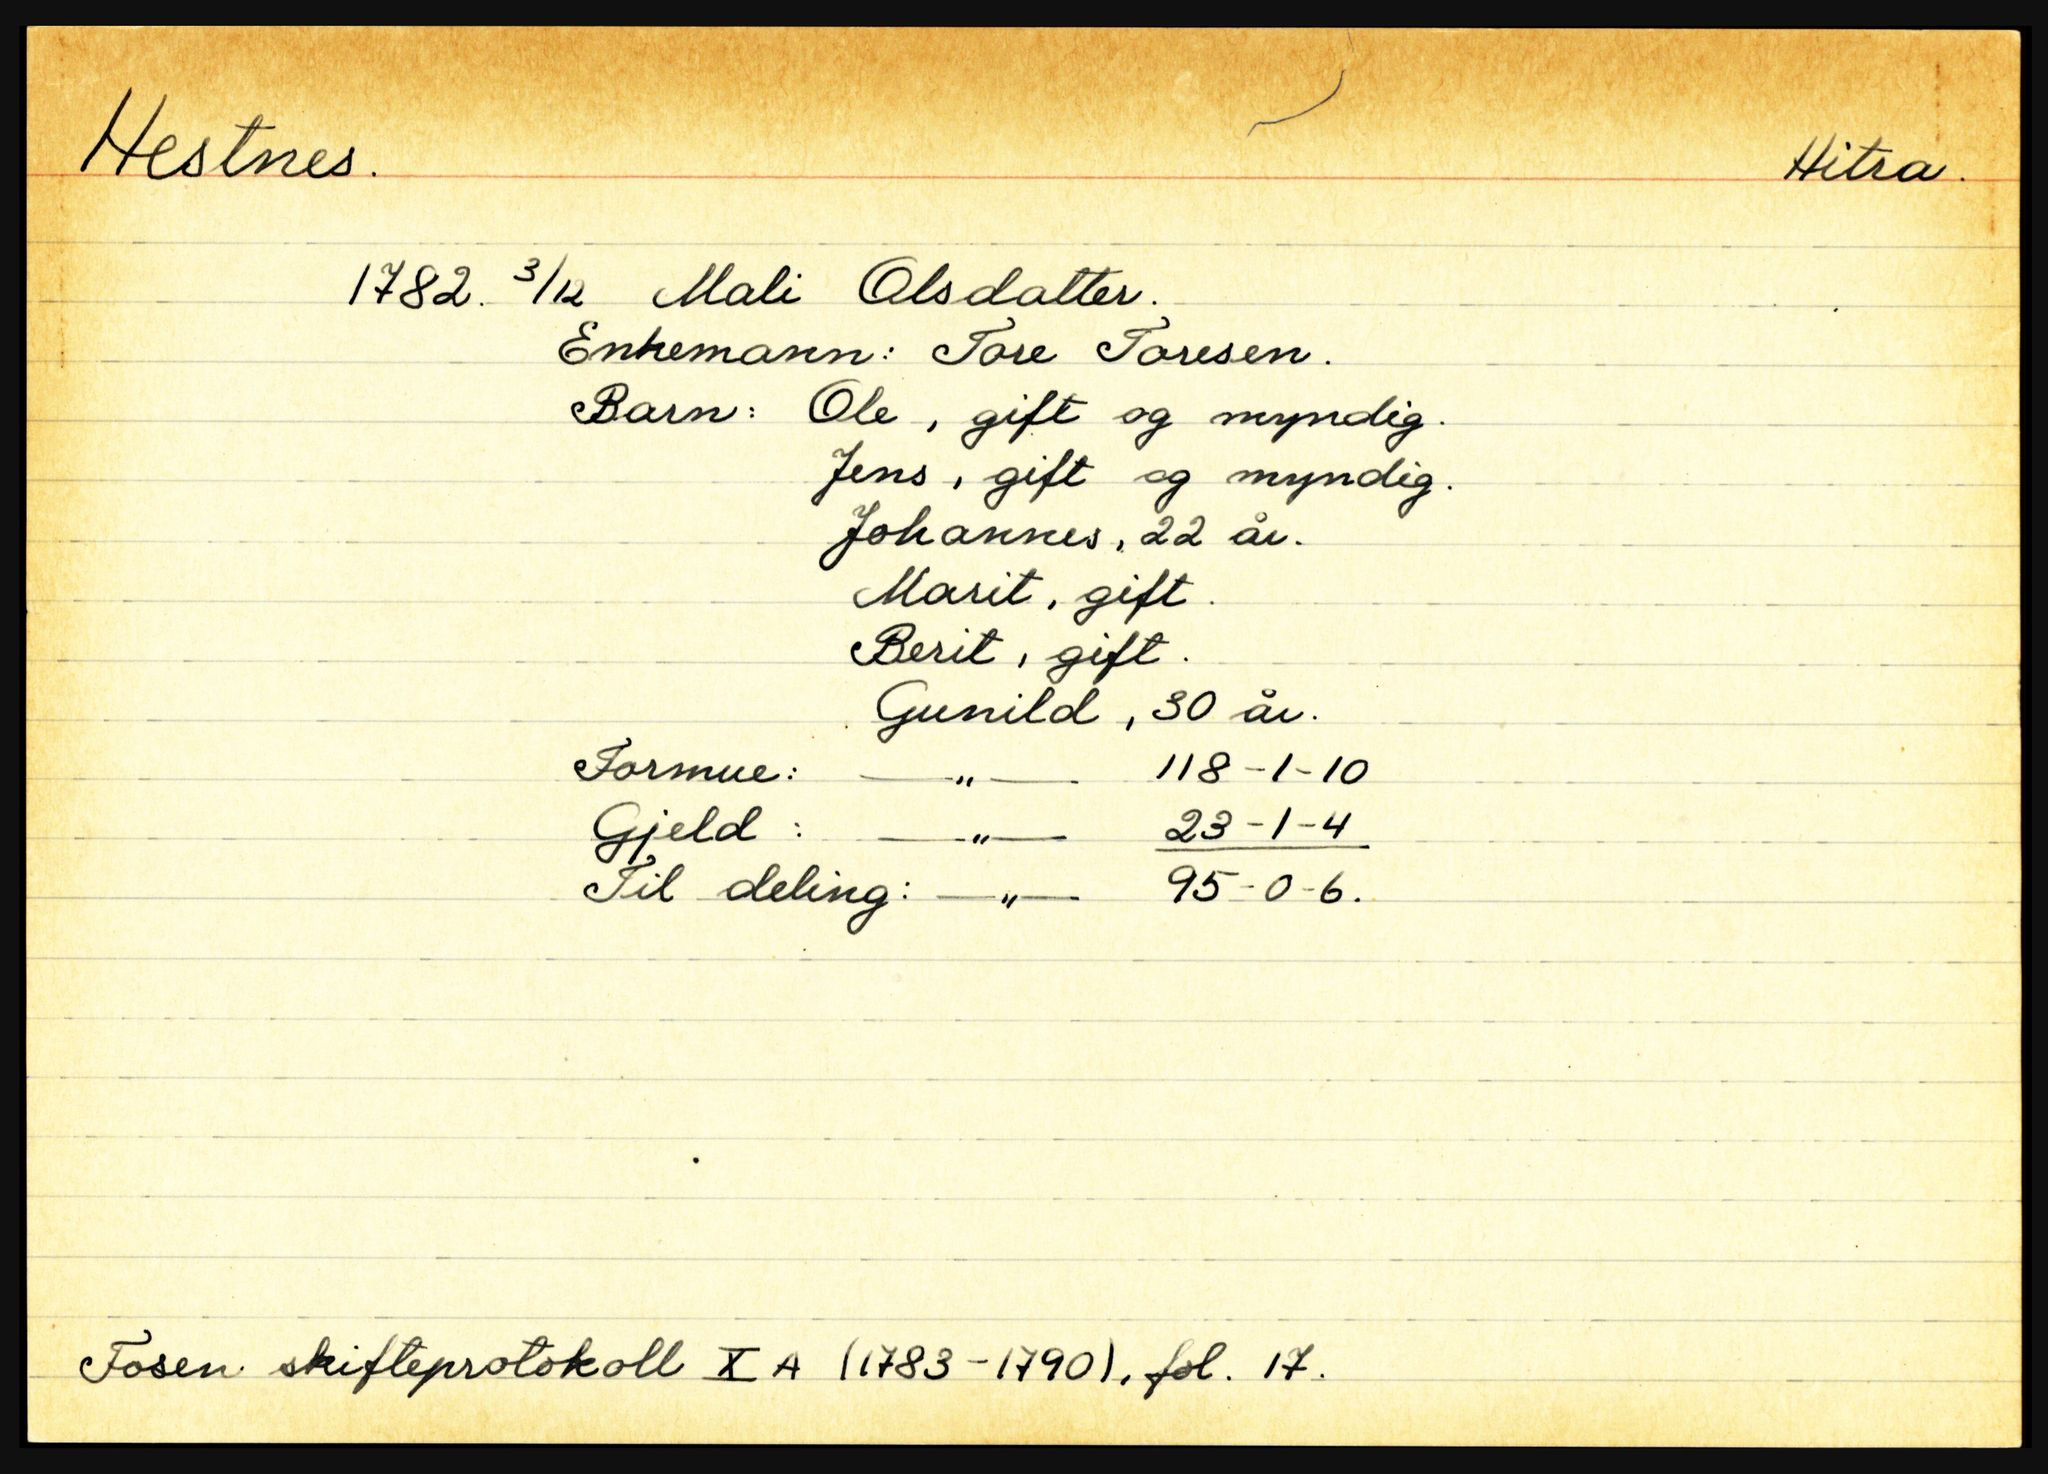 Hestnes. Hitra.
1782. 3/12 Mali Olsdatter.
Enkemann: Tore Toresen.
Barn: Ole, gift og myndig.
Jens, gift og myndig.
Johannes, 22 år.
Marit, gift.
Berit, gift.
Gunild, 30 år.
Formue: — " — 118-1-10
Gjeld: — " — 23-1-4
Til deling: — " — 95-0-6.
Fosen skifteprotokoll X A (1783-1790), fol. 17.